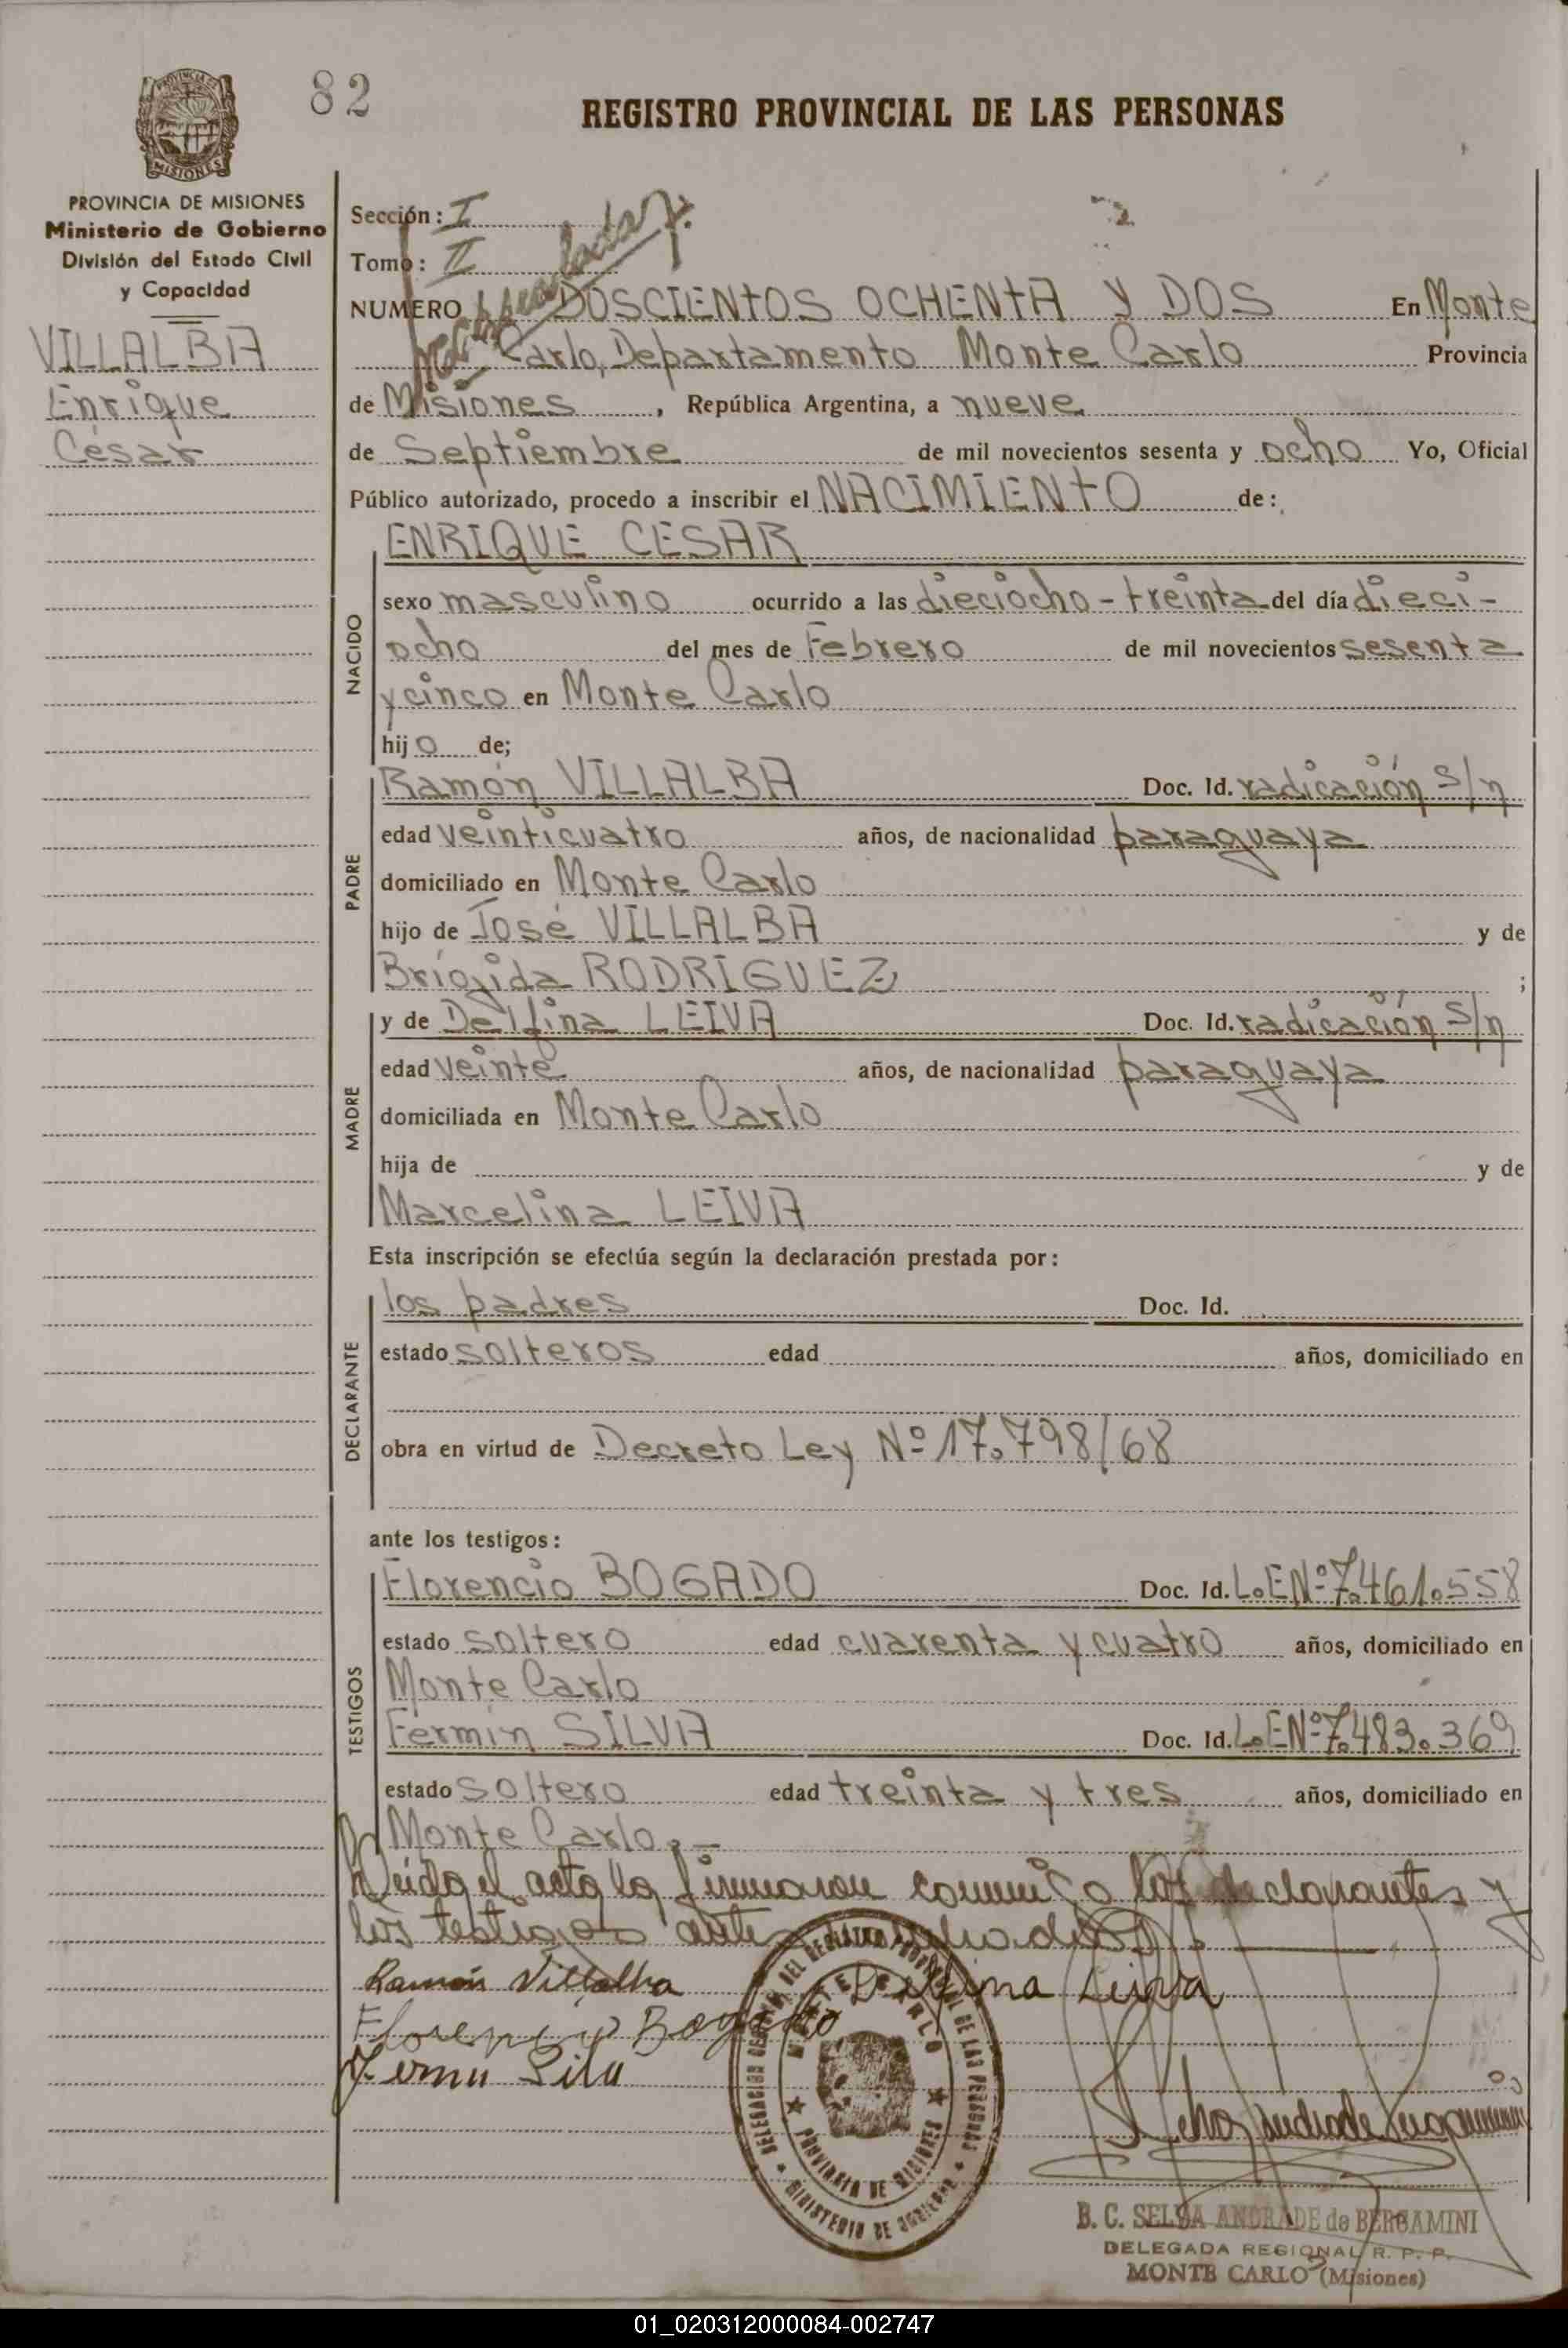 82
REGISTRO PROVINCIAL DE LAS PERSONAS
PROVINCIA DE MISIONES
Ministerio de Gobierno
División del Estado Civil
y Capacidad
VILLALBA
Enrique
César
Sección: I
Tomo: II
NUMERO DOSCIENTOS OCHENTA Y DOS En Monte
Carlo, Departamento Monte Carlo Provincia
de Misiones, República Argentina, a nueve
de Septiembre de mil novecientos sesenta y ocho Yo, Oficial
Público autorizado, procedo a inscribir el NACIMIENTO de:
NACIDO
ENRIQUE CESAR
sexo masculino ocurrido a las dieciocho-treinta del día dieci-
ocho del mes de Febrero de mil novecientos sesenta
y cinco en Monte Carlo
hijo de;
PADRE
Ramón VILLALBA Doc. Id. radicación s/n
edad veinticuatro años, de nacionalidad paraguaya
domiciliado en Monte Carlo
hijo de José VILLALBA y de
Brígida RODRIGUEZ ;
MADRE
y de Delfina LEIVA Doc. Id. radicación s/n
edad veinte años, de nacionalidad paraguaya
domiciliada en Monte Carlo
hija de y de
Marcelina LEIVA
Esta inscripción se efectúa según la declaración prestada por:
DECLARANTE
los padres Doc. Id.
estado solteros edad años, domiciliado en
obra en virtud de Decreto Ley Nº 17.798/68
ante los testigos:
TESTIGOS
Florencio BOGADO Doc. Id. L.E Nº 7.461.558
estado soltero edad cuarenta y cuatro años, domiciliado en
Monte Carlo
Fermín SILVA Doc. Id. L.E Nº 7.483.369
estado soltero edad treinta y tres años, domiciliado en
Monte Carlo.-
Leída el acta la firmaron conmigo los declarantes y
los testigos antes
Ramón Villalba Delfina Leiva
Florencio Bogado
DELEGACION REGISTRO PROVINCIAL DE LAS PERSONAS
MONTE CARLO
PROVINCIA DE MISIONES
MINISTERIO DE GOBIERNO
B. C. SELVA ANDRADE de BERGAMINI
DELEGADA REGIONAL R. P. P.
MONTE CARLO (Misiones)
01_020312000084-002747